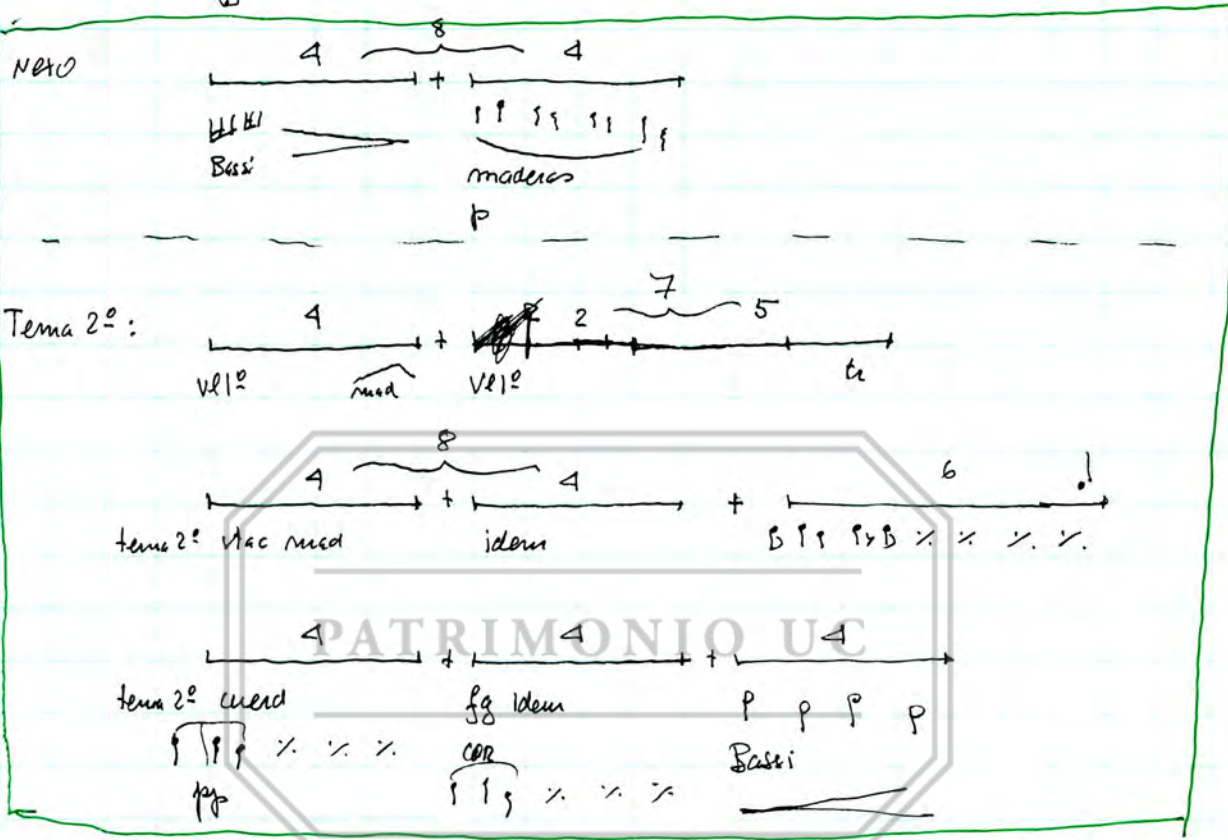 8
Nexo 4 + 4
Bassi maderas
p
7
Tema 2º: 4 + 2 5
vl1º mad vl1º tr
8
4 + 4 + 6 !
tema 2º mad idem ٪ ٪ ٪ ٪
PATRIMONIO UC
4 + 4 + 4
tema 2º cuerd fg idem
٪ ٪ ٪ COR ٪ ٪ ٪ Bassi
pp